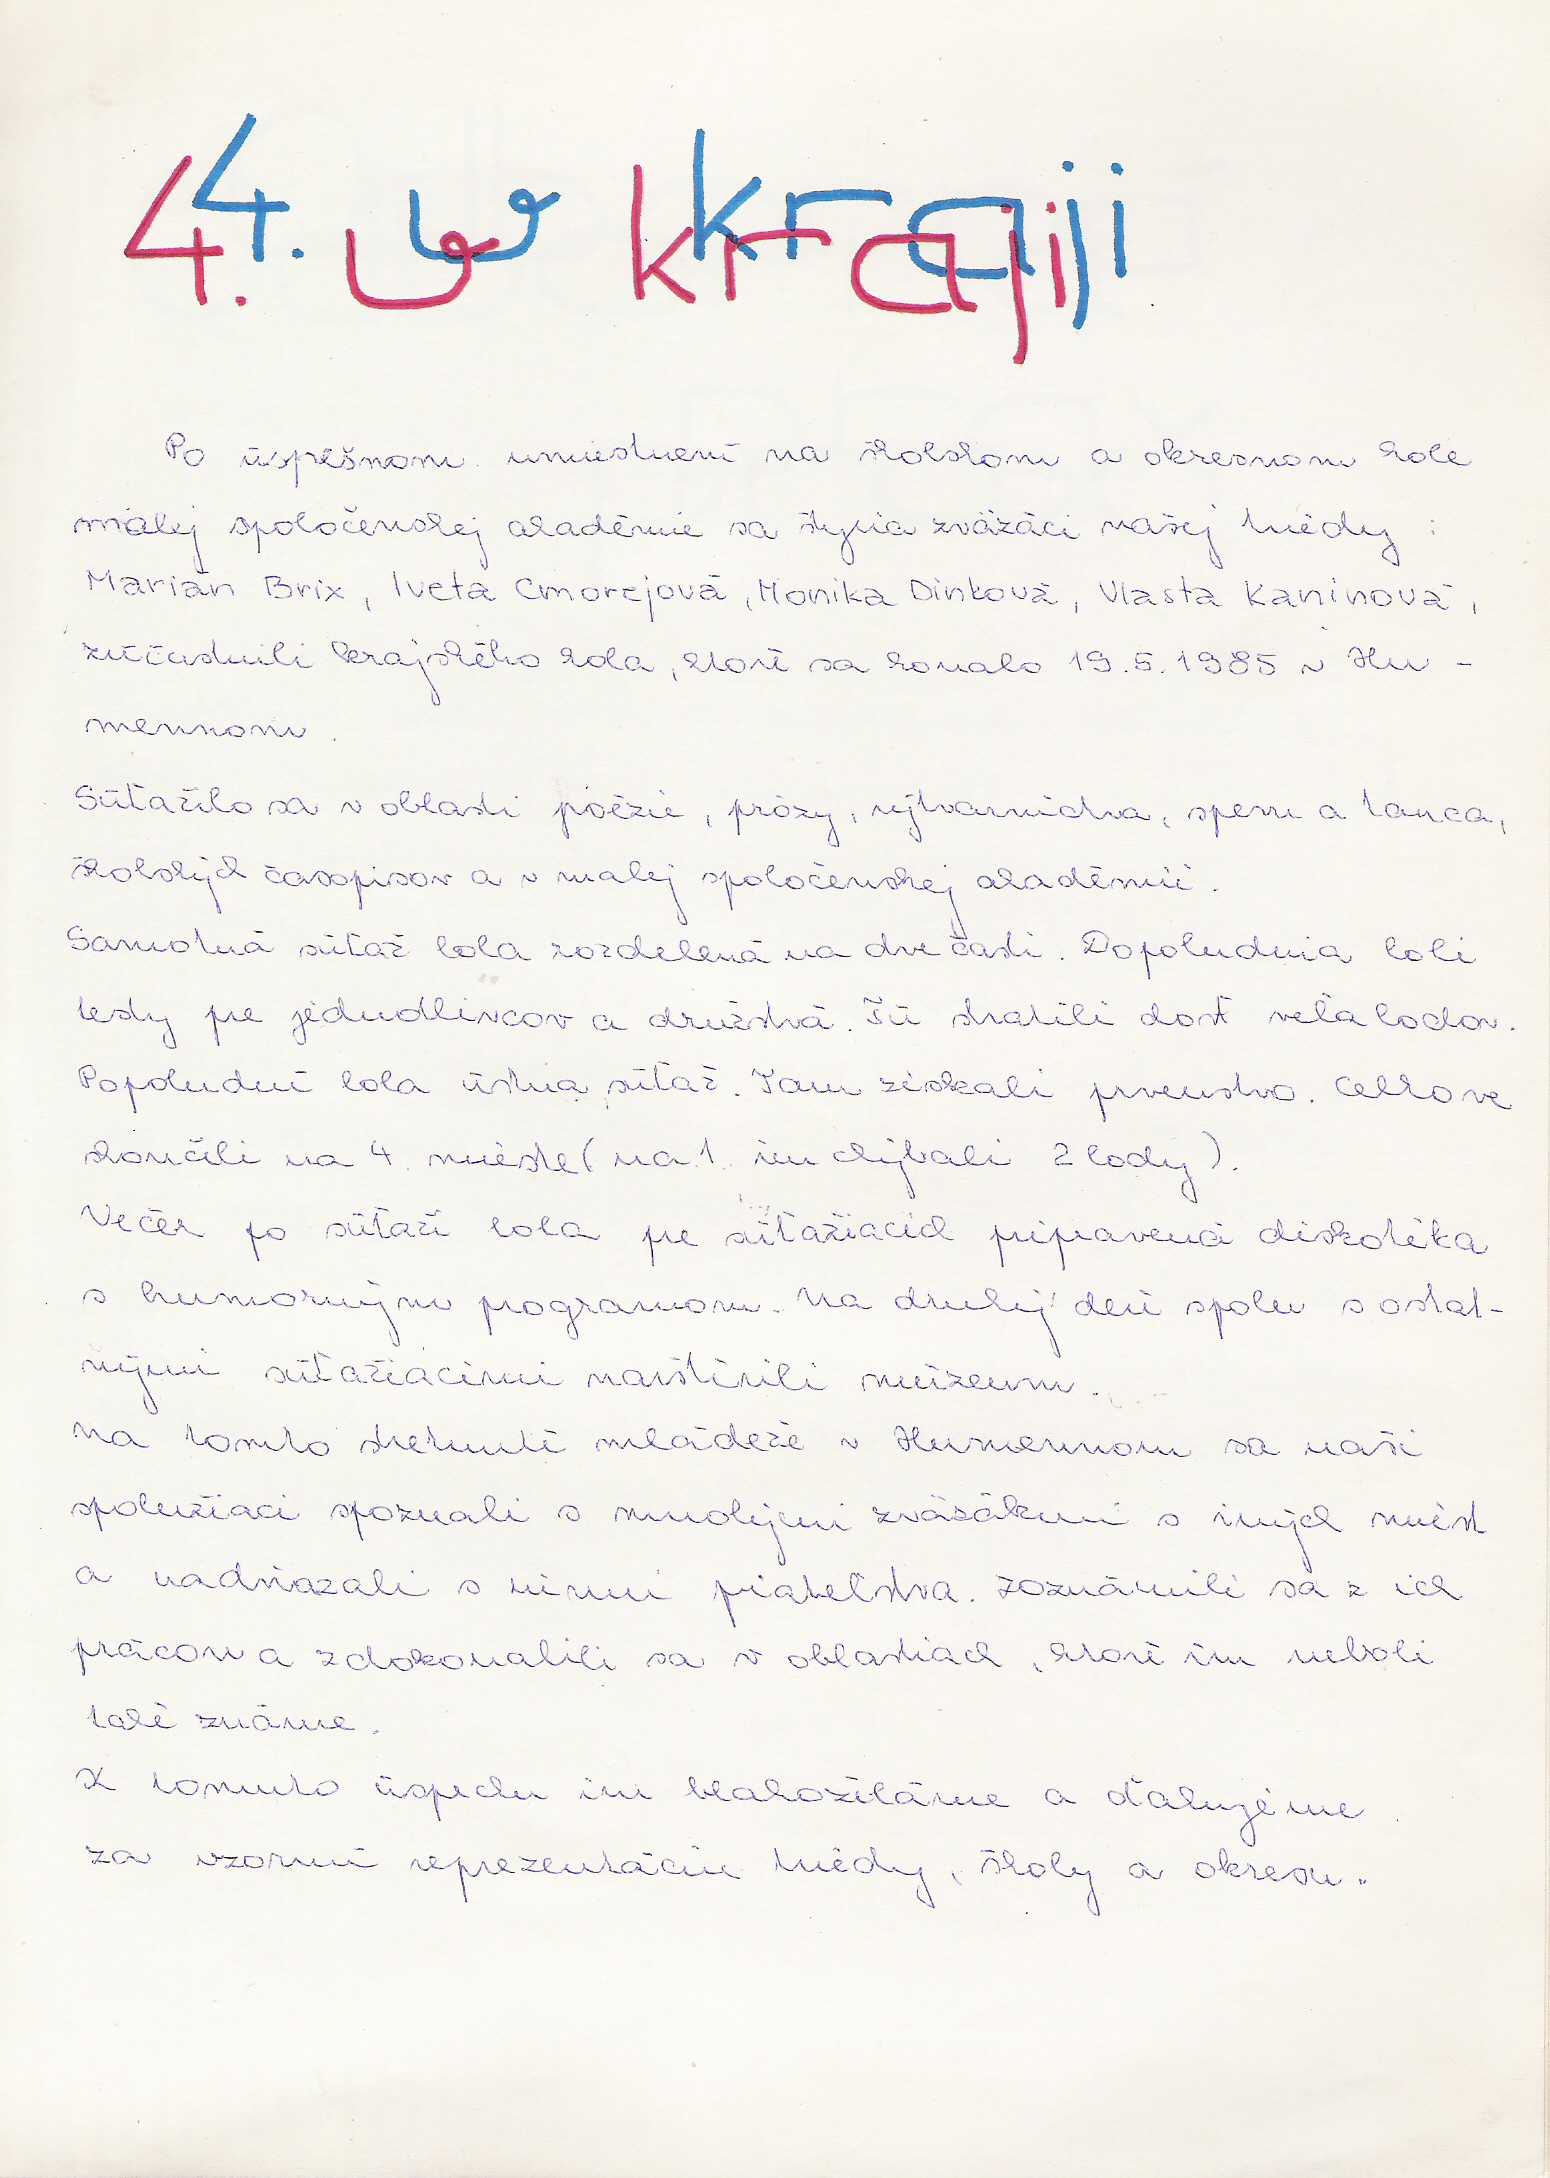 4. v kraji
Po úspešnom umiestnení na školskom a okresnom kole
malej spoločenskej akadémie sa štyria zväzáci našej triedy :
Marián Brix, Iveta Cmorejová, Monika Dinková, Vlasta Kaninová,
zúčastnili krajského kola, ktoré sa konalo 19.5.1985 v Hu -
mennom.
Súťažilo sa v oblasti poézie, prózy, výtvarníctva, spevu a tanca,
školských časopisov a v malej spoločenskej akadémii.
Samotná súťaž bola rozdelená na dve časti. Dopoludnia boli
testy pre jednotlivcov a družstvá. Tú stratili dosť veľa bodov.
Popoludní bola ústna súťaž. Tam získali prvenstvo. Celkove
skončili na 4. mieste (na 1. im chýbali 2 body).
Večer po súťaži bola pre súťažiacich pripravená diskotéka
s humorným programom. Na druhý deň spolu s ostat-
nými súťažiacimi navštívili múzeum.
Na tomto stretnutí mládeže v Humennom sa naši
spolužiaci spoznali s mnohými zväzákmi s iných miest
a nadviazali s nimi priateľstva. Zoznámili sa z ich
prácou a zdokonalili sa v oblastiach, ktoré im neboli
také známe.
K tomuto úspechu im blahoželáme a ďakujeme
za vzornú reprezentáciu triedy, školy a okresu.